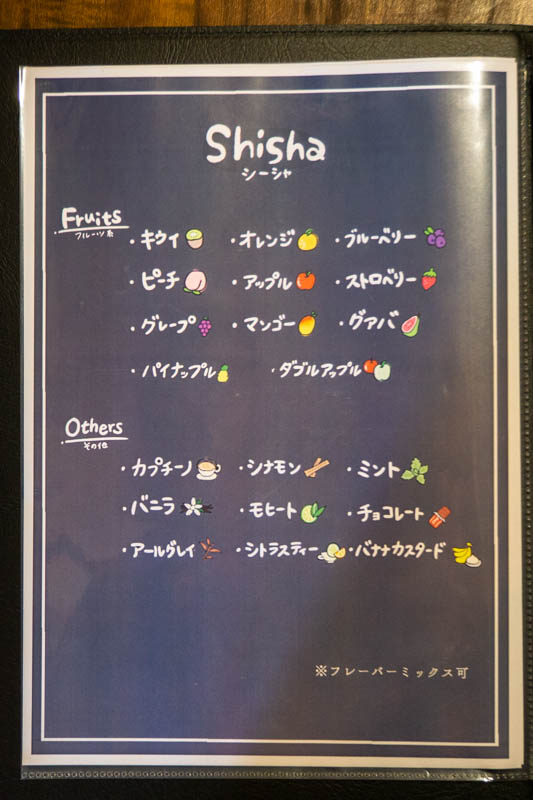 Shisha
シーシャ
Fruits
フルーツ系
・キウイ ・オレンジ ・ブルーベリー
・ピーチ ・アップル ・ストロベリー
・グレープ ・マンゴー ・グァバ
・パイナップル ・ダブルアップル
Others
その他
・カプチーノ ・シナモン ・ミント
・バニラ ・モヒート ・チョコレート
・アールグレイ ・シトラスティー ・バナナカスタード
※フレーバーミックス可